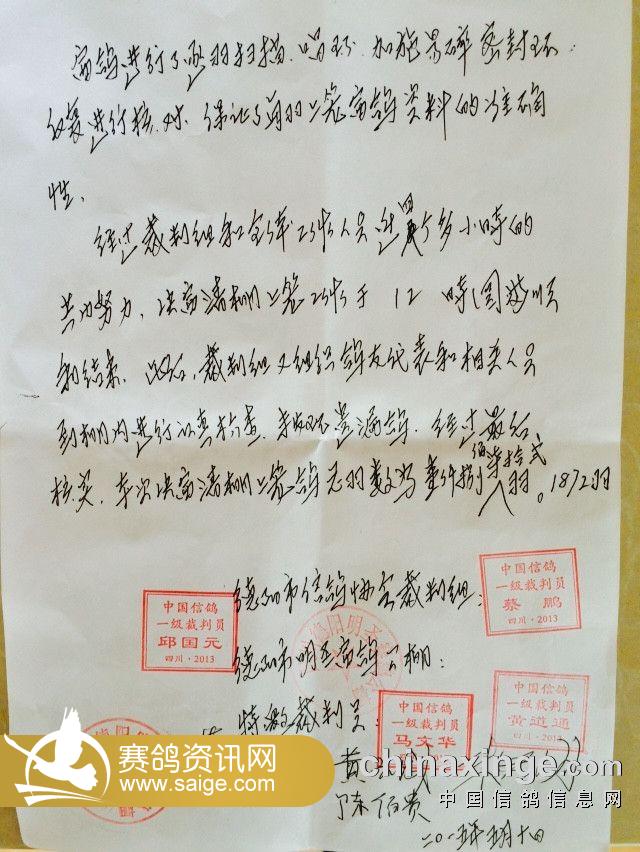 赛鸽进行了逐羽扫描、唱环、加施易碎密封环、
仪复进行核对、保证了每羽上笼赛鸽资料的准确
性。
经过裁判组和全体工作人员近四个多小时的
共同努力,决赛清棚上笼工作于12时1圆满顺
利结束。此后,裁判组又组织鸽友代表和相关人员
到棚内进行认真检查,未发现遗漏鸽。经过最后
核实,本次决赛清棚上笼鸽总羽数为壹仟捌佰柒拾贰羽。1872羽
德阳市信鸽协会裁判组:
中国信鸽
一级裁判员
蔡鹏
四川·2013
中国信鸽
一级裁判员
邱国元
四川·2013
德阳市明圣赛鸽公棚:
特邀裁判员:
中国信鸽
一级裁判员
马文华
中国信鸽
一级裁判员
黄道通
四川·2013
黄
陈佰贵
二〇一五年
赛鸽资讯网
www.saige.com
chinaxinge.com
中国信鸽信息网